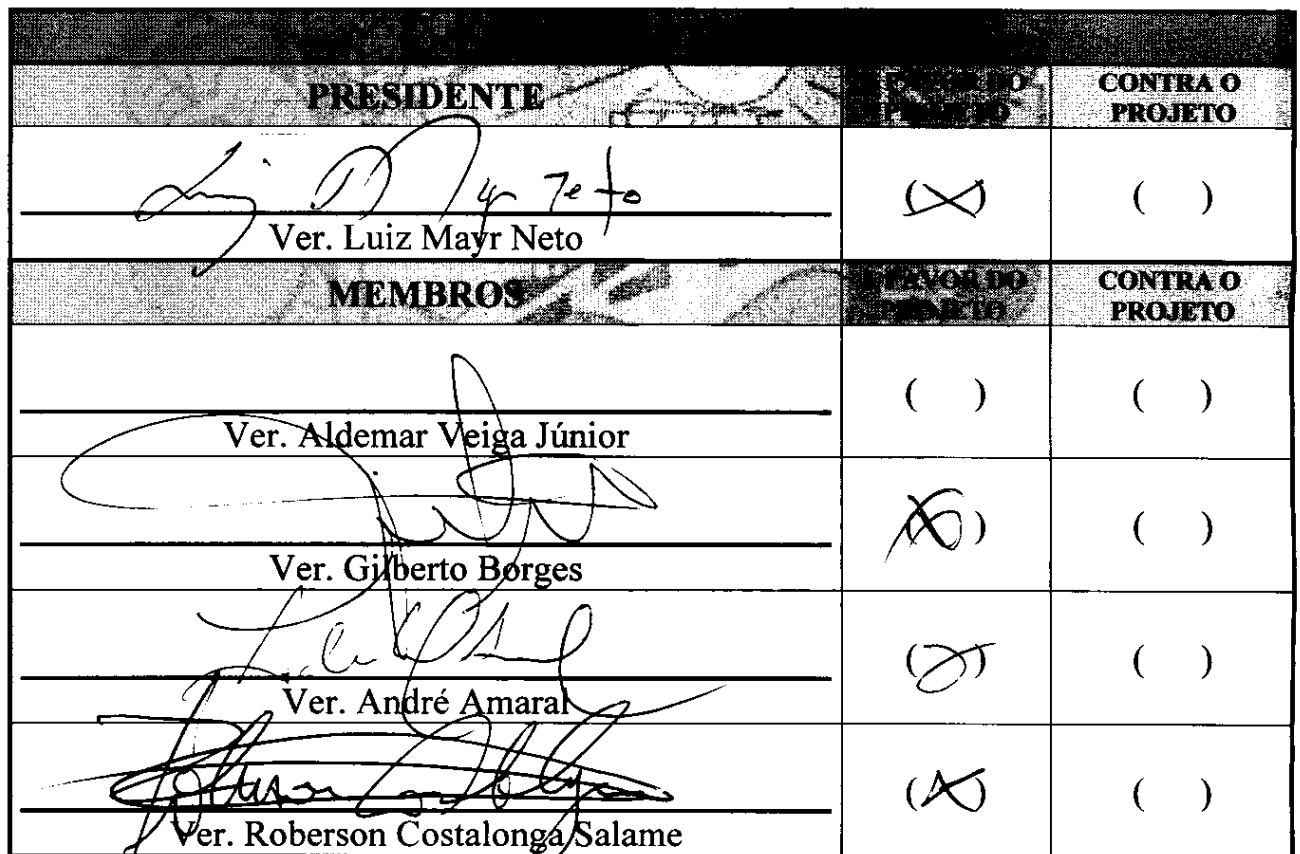 PRESIDENTE
FAVOR DO PROJETO
CONTRA O PROJETO
(X)
( )
Ver. Luiz Mayr Neto
MEMBROS
FAVOR DO PROJETO
CONTRA O PROJETO
( )
( )
Ver. Aldemar Veiga Júnior
(X)
( )
Ver. Gilberto Borges
( )
Ver. André Amaral
(X)
( )
Ver. Roberson Costalonga Salame